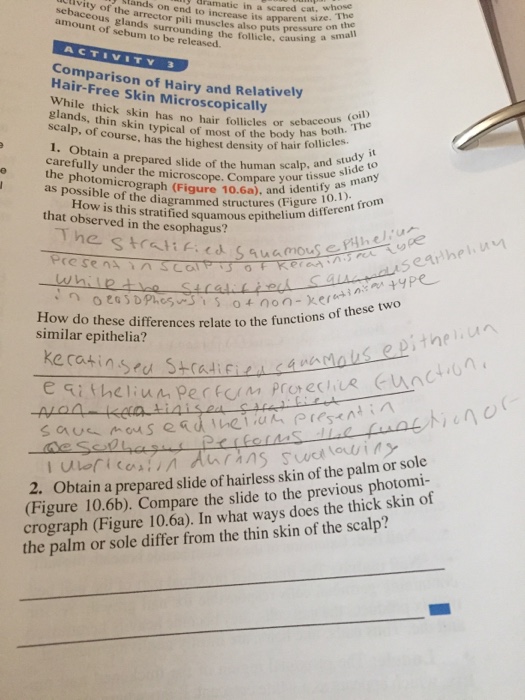 stands on end to increase its apparent size. The
dramatic in a scared cat, whose
activity of the arrector pili muscles also puts pressure on the
sebaceous glands surrounding the follicle, causing a small
amount of sebum to be released.
ACTIVITY 3
Comparison of Hairy and Relatively
Hair-Free Skin Microscopically
While thick skin has no hair follicles or sebaceous (oil)
glands, thin skin typical of most of the body has both. The
scalp, of course, has the highest density of hair follicles.
1. Obtain a prepared slide of the human scalp, and study it
carefully under the microscope. Compare your tissue slide to
the photomicrograph (Figure 10.6a), and identify as many
as possible of the diagrammed structures (Figure 10.1).
How is this stratified squamous epithelium different from
that observed in the esophagus?
The stratified squamous epithelium
present in scalp is of keratinised type
while the stratified squamous
is of non-keratinised type
How do these differences relate to the functions of these two
similar epithelia?
keratinised stratified squamous epithelium
perform protective function.
non-keratinised stratified
present in
performs the function of
during swallowing
2. Obtain a prepared slide of hairless skin of the palm or sole
(Figure 10.6b). Compare the slide to the previous photomi-
crograph (Figure 10.6a). In what ways does the thick skin of
the palm or sole differ from the thin skin of the scalp?